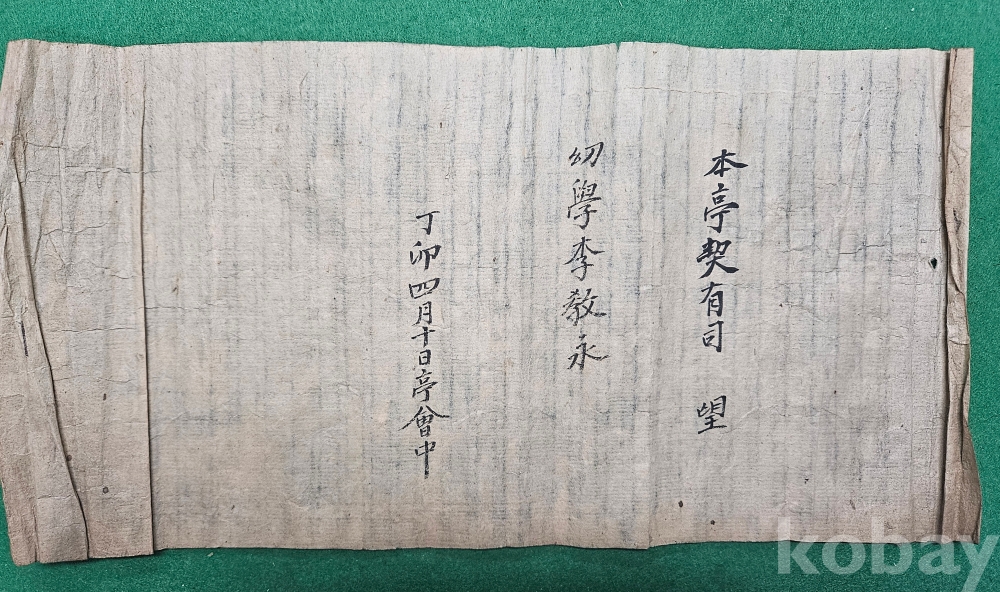 本亭契有司　望
幼學李敎永
丁卯四月十日亭會中
kobay